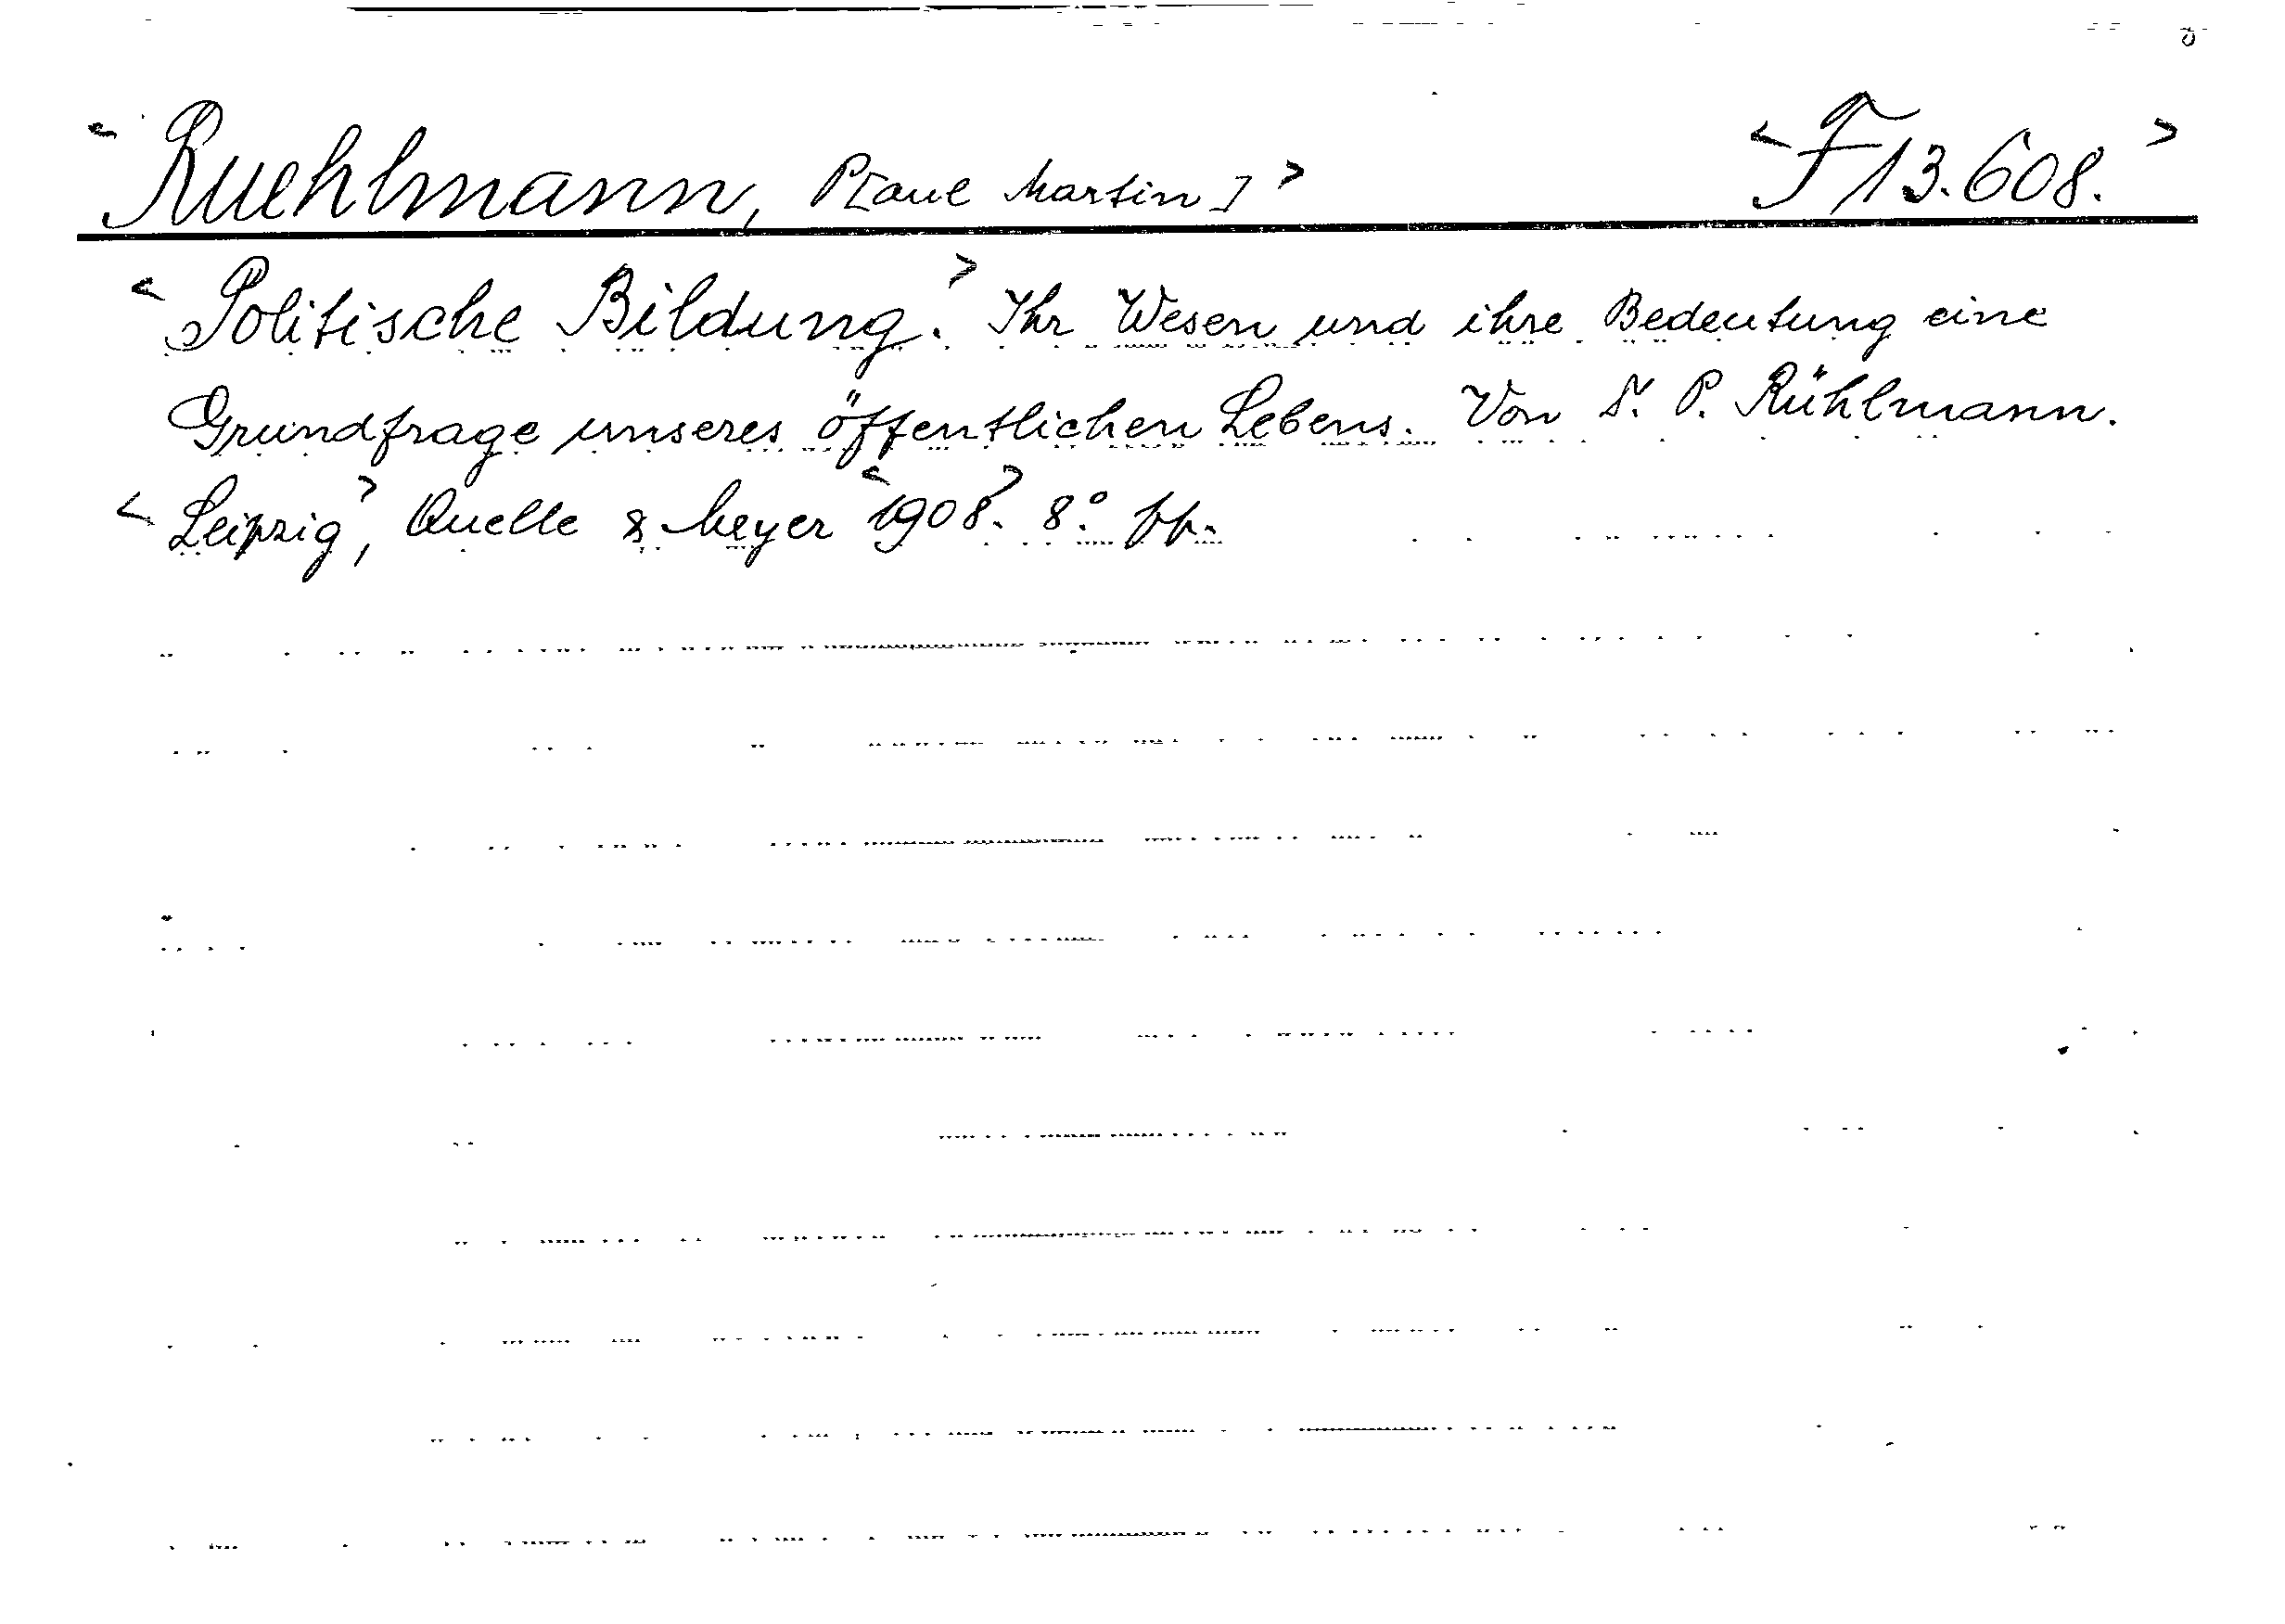 <Ruehlmann, P[aul Martin]> <F 13.608.>
<Politische Bildung.> Ihr Wesen und ihre Bedeutung eine
Grundfrage unseres öffentlichen Lebens. Von Dr. P. Rühlmann.
<Leipzig>, Quelle & Meyer <1908>. 8.°